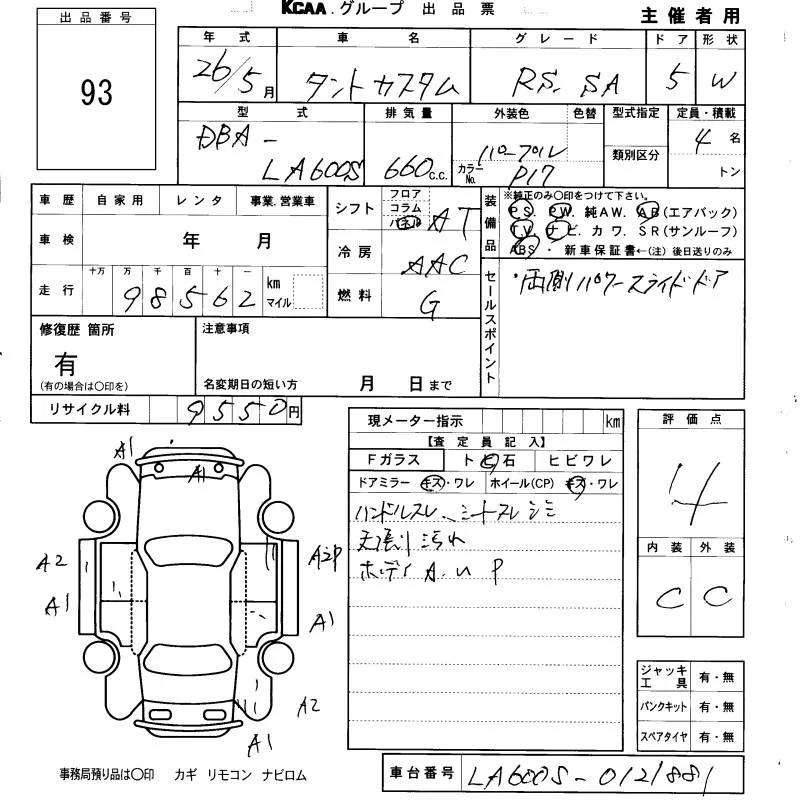 KCAA.グループ 出品票
主催者用
出品番号
93
年式 車名 グレード ドア 形状
26/5月 タントカスタム RS. SA 5 W
型式 排気量 外装色 色替 型式指定 定員・積載
DBA- LA600S 660c.c. パープル カラーNo. P17 類別区分 4名 トン
車歴 自家用 レンタ 事業.営業車
車検 年 月
走行 十万 万 千 百 十 一 km マイル
98562
シフト フロア コラム パネル AT
冷房 AAC
燃料 G
装備品 ※純正のみ○印をつけて下さい。
PS. PW. 純AW. AB(エアバック)
TV. ナビ. カワ. SR(サンルーフ)
ABS・新車保証書←(注)後日送りのみ
セールスポイント
・両側パワースライドドア
修復歴 箇所
有
(有の場合は○印を)
注意事項
名変期日の短い方 月 日まで
リサイクル料 9550円
現メーター指示 km
【査定員記入】
Fガラス トビ石 ヒビワレ
ドアミラー キズ・ワレ ホイール(CP) キズ・ワレ
ハンドルスレ、シートスレシミ
天張り汚れ
ボディ A.U P
評価点
4
内装 外装
C C
A1
A1
A2 A2P
A1 A1
A2
A1
ジャッキ工具 有・無
パンクキット 有・無
スペアタイヤ 有・無
事務局預り品は○印 カギ リモコン ナビロム
車台番号 LA600S-0121881